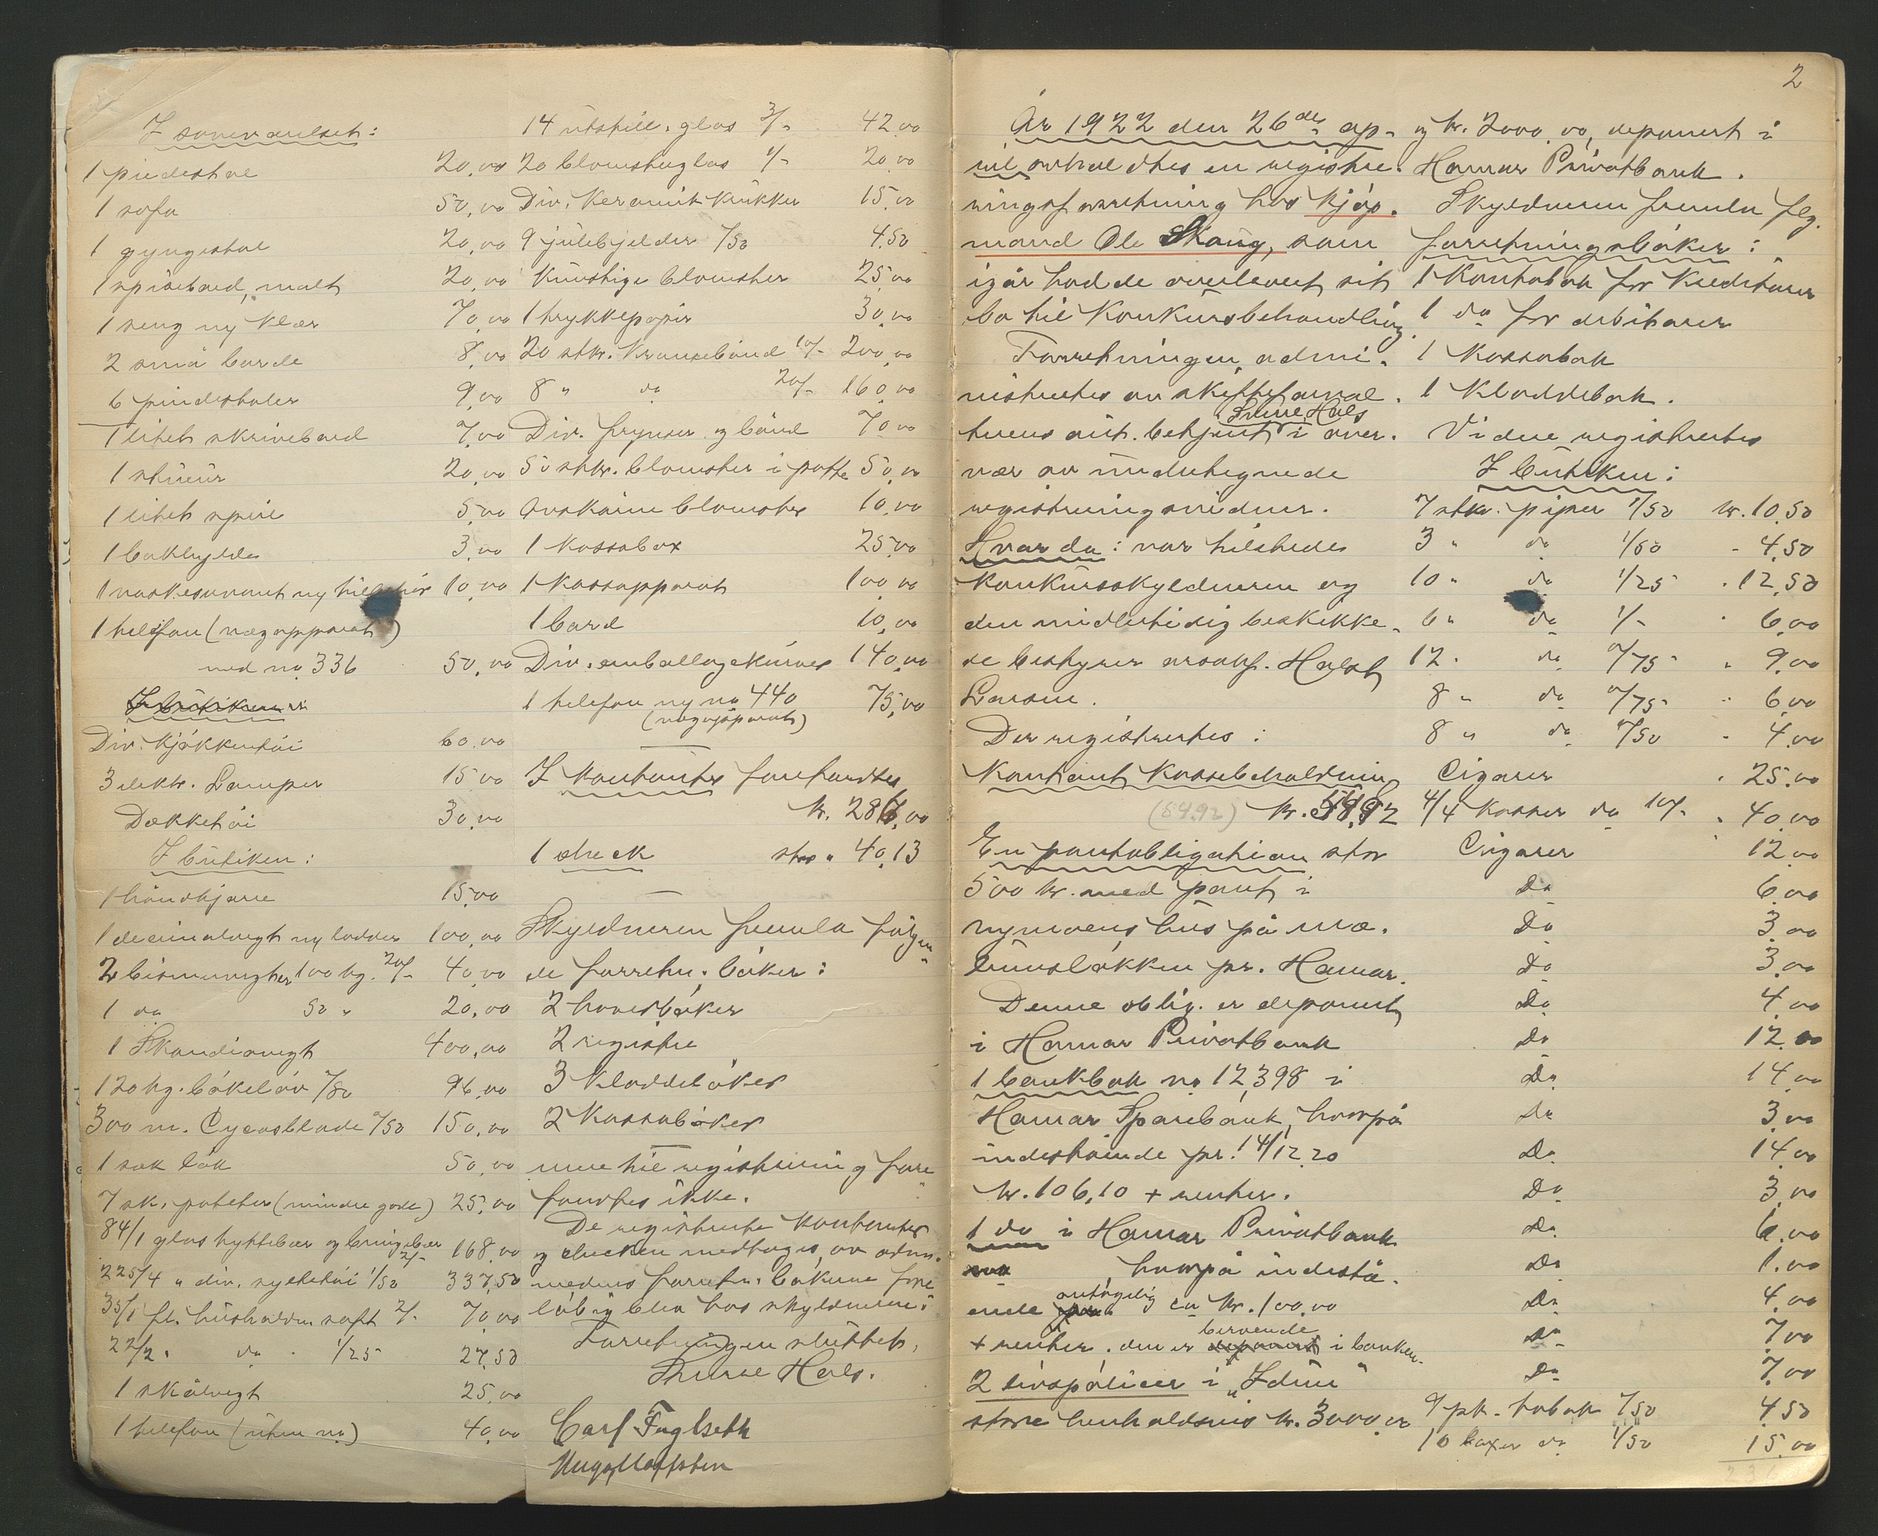 I soveværelset:
1 piedestal 20,00
1 sofa 50,00
1 gyngestol 20,00
1 spisebord, malt 20,00
1 seng og klær 70,00
2 små borde 8,00
6 piedestaler 9,00
1 litet skrivebord 7,00
1 stueur 20,00
1 litet speil 5,00
1 bokhylde 3,00
1 vaskeservant og tilbehør 10,00
1 telefon (vægapparat)
med no 336 50,00
I butikken:
Div. kjøkkentøi 60.00
3 elektr. Lamper 15,00
Dækketøi 30,00
I butiken:
1 håndkjærre 15,00
1 decimalvegt og lodder 100,00
2 bismervegter 100 kg. 20/- 40,00
1 do 50 " 20,00
1 Skandiavegt 400,00
120 kg. bøkeløv /80 96,00
300 m. Cycasblade /50 150,00
1 sæk løk 50,00
7 sk. poteter (mindre gode) 25,00
84/1 glas tyttebær og bringebær 2/- 168,00
225/4 " div. syltetøi 1/50 337,50
35/1 fl. husholdn. saft 2/- 70,00
22/2 " do " 1/25 27,50
1 skålvegt 25,00
1 telefon (uten no) 40,00
14 utstill. glas 3/- 42,00
20 blomsterglas 1/- 20,00
Div. keramik krukker 15,00
9 julebjelder /50 4,50
Kunstige blomster 25,00
1 trykkepapir 30,00
20 stkr. kransebånd 10/- 200,00
8 " do 20/- 160,00
Div. frynser og bånd 70,00
50 stkr. blomster i potte 50,00
Avskårne blomster 10,00
1 kassabox 25,00
1 kassapparat 100,00
1 bord 10,00
Div. emballagekurver 140,00
1 telefon og no 440 75,00
(vægapparat)
I kontanter forefandtes
kr. 286,00
1 check stor " 40,13
Skyldneren fremla følgen-
de forretn. bøker:
2 hovedbøker
2 registre
3 kladdebøker
2 kassabøker
mere til registrering fore-
fandtes ikke.
De registrerte kontanter
og checken medtages av adm.
medens forretn. bøkerne fore-
løbig blir hos skyldneren.
Forretningen sluttet.
Signe Hals.
Carl Fuglseth
2
År 1922 den 26de ap-
ril avholdtes en registre-
ringsforretning hos kjøp-
mand Ole Skaug, som
igår hadde overlevert sit
bo til konkursbehandling.
Forretningen admi-
nistrertes av skifteforval-
terens aut. betjent Signe Hals i over-
vær av undertegnede
registreringsvidner.
Hvorda: var tilstede
konkursskyldneren og
den midlertidig beskikke-
de bestyrer ovsakf. Halst
Larsen.
Der registrertes:
Kontant kassebeholdning
(54.92) kr. 54,92
En pantobligation stor
500 kr. med pant i
nymoens hus på
løkken pr. Hamar.
Denne oblig. er deponert
i Hamar Privatbank
1 bankbok no 12,398 i
Hamar Sparebank, hvorpå
indestående pr. 14/12.20
kr. 106,10 + renter.
1 do i Hamar Privatbank
hvorpå indestå-
ende antagelig ca kr. 100.00
+ renter. den er beroende i banken.
2 livspoliser i "Idun"
store henholdsvis kr. 3000,00
og kr. 2000,00, deponert i
Hamar Privatbank.
Skyldneren fremla flg.
forretningsbøker:
1 kontobok for kreditorer
1 do for debitorer
1 kassabok
1 kladdebok.
Videre registrertes
I butiken:
7 stkr. piper 1/50 kr. 10,50
3 " do 1/50 - 4,50
10 " do 1/25 " 12,50
6 " do 1/- " 6,00
12 " do /75 " 9,00
8 " do /75 " 6,00
8 " do /50 " 4,00
Cigarer " 25,00
4/4 kasser do 10/- " 40,00
Cigarer 12,00
Do 6,00
Do 3,00
Do 3,00
Do 4,00
Do 12,00
Do 14,00
Do 3,00
Do 14,00
Do 3,00
Do 6,00
Do 1,00
Do 4,00
Do 7,00
Do 7,00
9 pk. tobak /50 4,50
10 boxer do 1/50 15,00